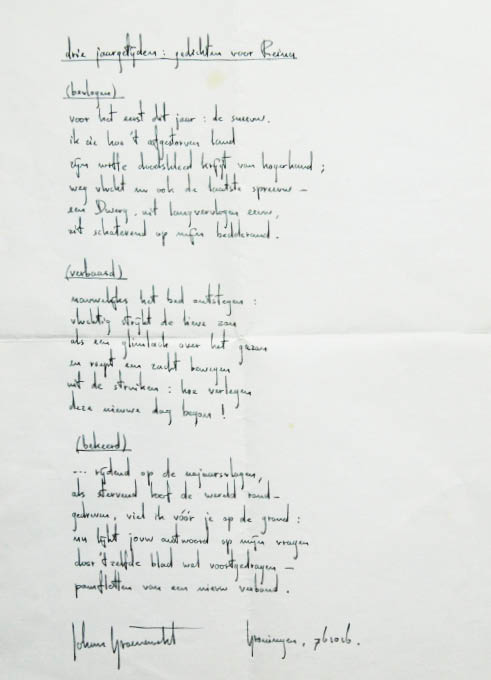 drie jaargetijden: gedichten voor Reina
(bevlogen)
voor het eerst dit jaar: de sneeuw.
ik zie hoe 't afgestorven land
zijn witte doodskleed krijgt van hogerhand;
weg vlucht nu ook de laatste spreeuw –
een Dwerg, uit langvervlogen eeuw,
zit schaterend op mijn bedderand.
(verbaasd)
nauwelijks het bed ontstegen:
vluchtig strijkt de lieve zon
als een glimlach over het gazon
en roept een zacht bewegen
uit de struiken: hoe verlegen
deze nieuwe dag begon!
(bekeerd)
... rijdend op de najaarsvlagen,
als stervend loof de wereld rond –
gedreven, viel ik vóór je op de grond:
nu lijkt jouw antwoord op mijn vragen
door 't zelfde blad wel voortgedragen –
pamfletten van een nieuw verbond.
Johan
Groningen,